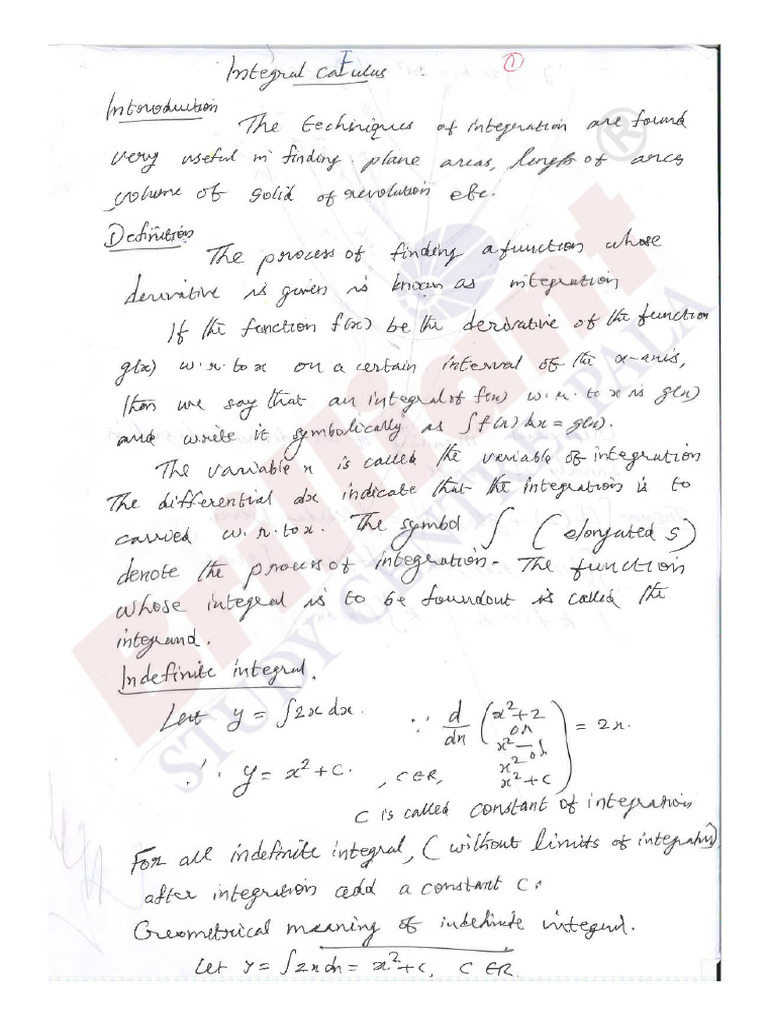 Integral Calculus
①
Introduction
The techniques of integration are found
very useful in finding plane areas, length of arcs
volume of solid of revolution etc.
Definition
The process of finding a function whose
derivative is given is known as integration
If the function f(x) be the derivative of the function
g(x) w.r.to x on a certain interval of the x-axis,
then we say that an integral of f(x) w.r.to x is g(x)
and write it symbolically as ∫f(x)dx = g(x).
The variable x is called the variable of integration
The differential dx indicate that the integration is to
carried w.r.to x. The symbol ∫ (elongated s)
denote the process of integration. The function
whose integral is to be foundout is called the
integrand.
Indefinite integral.
Let y = ∫2x dx. ∵ d/dx (x²+2 or x²– or x² or x²+c) = 2x.
∴ y = x²+c. , c∈R,
C is called constant of integration
For all indefinite integral, (without limits of integration)
after integration add a constant C.
Geometrical meaning of indefinite integral.
Let y = ∫2x dx = x²+c, C∈R.
Brilliant
STUDY CENTRE, PALA
®